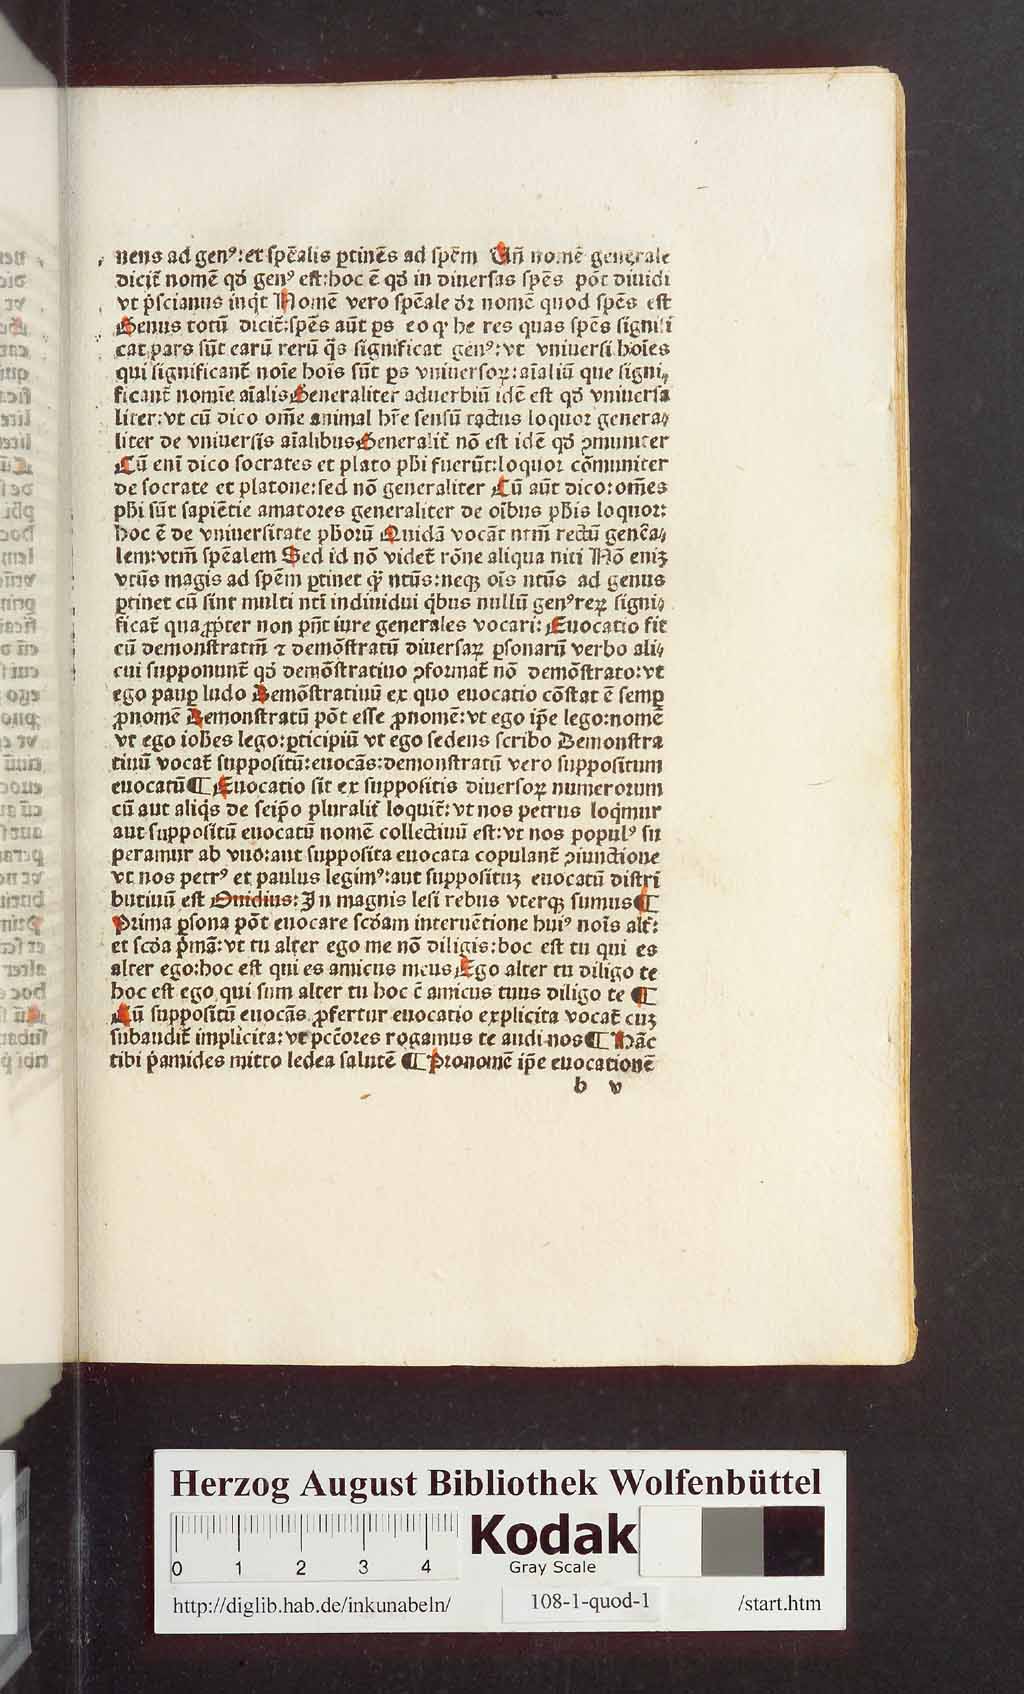 nens ad genꝰ: et spēalis ꝑtinēs ad spēm Uñ nomē generale
dicit̄ nomē qđ genꝰ est: hoc ē qđ in diuersas spēs pōt diuidi
vt p̄scianus inq̇t Nomē vero spēale dr̄ nomē quod spēs est
Genus totū dicit̄: spēs aūt ps eo ꝙ he res quas spēs signifi
cat pars sūt earū rerū q̄s significat genꝰ: vt vniuersi hoīes
qui significant̄ noīe hoīs sūt ꝑs vniuersoꝝ: aīaliū que signi⸗
ficant̄ nomīe aīalis Generaliter aduerbiū idē est qđ vniuersa
liter: vt cū dico om̄e animal hr̄e sensū tactus loquor genera⸗
liter de vniuersis aīalibus Generalit̄ nō est idē qđ ꝯmuniter
Cū eni dico socrates et plato phī fuerūt: loquor cōmuniter
de socrate et platone: sed nō generaliter Cū aūt dico: om̄es
phī sūt sapiētie amatores generaliter de oībus phīs loquor:
hoc ē de vniuersitate phōrū Quidā vocāt ntm̄ rectū gen̄ea⸗
lem: vtm̄ spēalem Sed id nō videt̄ rōne aliqua niti Nō eniꝫ
vtūs magis ad spēm ꝑtinet qꝫ ntūs: neqꝫ oīs ntūs ad genus
ꝑtinet cū sint multi ntī indiuidui q̇bus nullū genꝰ reꝝ signi⸗
ficat̄ quaꝓpter non pn̄t iure generales vocari: Euocatio fit
cū demonstratiū ⁊ demōstratū diuersaꝝ ꝑsonarū verbo ali⸗
cui supponunt̄ qđ demōstratiuo ꝯformat̄ nō demōstrato: vt
ego pauꝑ ludo Demōstratiuū ex quo euocatio cōstat ē semꝑ
ꝓnomē Demonstratū pōt esse ꝓnomē: vt ego ip̄e lego: nomē
vt ego ioħes lego: ꝑticipiū vt ego sedens scribo Demonstra
tiuū vocat̄ suppositū: euocās: demonstratū vero suppositum
euocatū ¶ Euocatio sit ex suppositis diuersoꝝ numerorum
cū aut aliq̇s de seip̄o pluralit̄ loquit̄: vt nos petrus loq̇mur
aut suppositū euocatū nomē collectiuū est: vt nos populꝰ su
peramur ab vno: aut supposita euocata copulant̄ ꝯiunctione
vt nos petrꝰ et paulus legimꝰ: aut suppositūꝫ euocatū distri
butiuū est Ouidius: In magnis lesi rebus vterqꝫ sumus ¶
Prima ꝑsona pōt euocare scđam interuētione huiꝰ noīs alt̄:
et scđa p̄mā: vt tu alter ego me nō diligis: hoc est tu qui es
alter ego: hoc est qui es amicus meus Ego alter tu diligo te
hoc est ego qui sum alter tu hoc ē amicus tuus diligo te ¶
Cū suppositū euocās ꝓfertur euocatio explicita vocat̄ cuꝫ
subaudit̄ implicita: vt pctōres rogamus te audi nos ¶ Hāc
tibi p̄amides mitto ledea salutē ¶ Pronomē ip̄e euocationē
b v
Herzog August Bibliothek Wolfenbüttel
0 1 2 3 4
Kodak
Gray Scale
http://diglib.hab.de/inkunabeln/ 108-1-quod-1 /start.htm